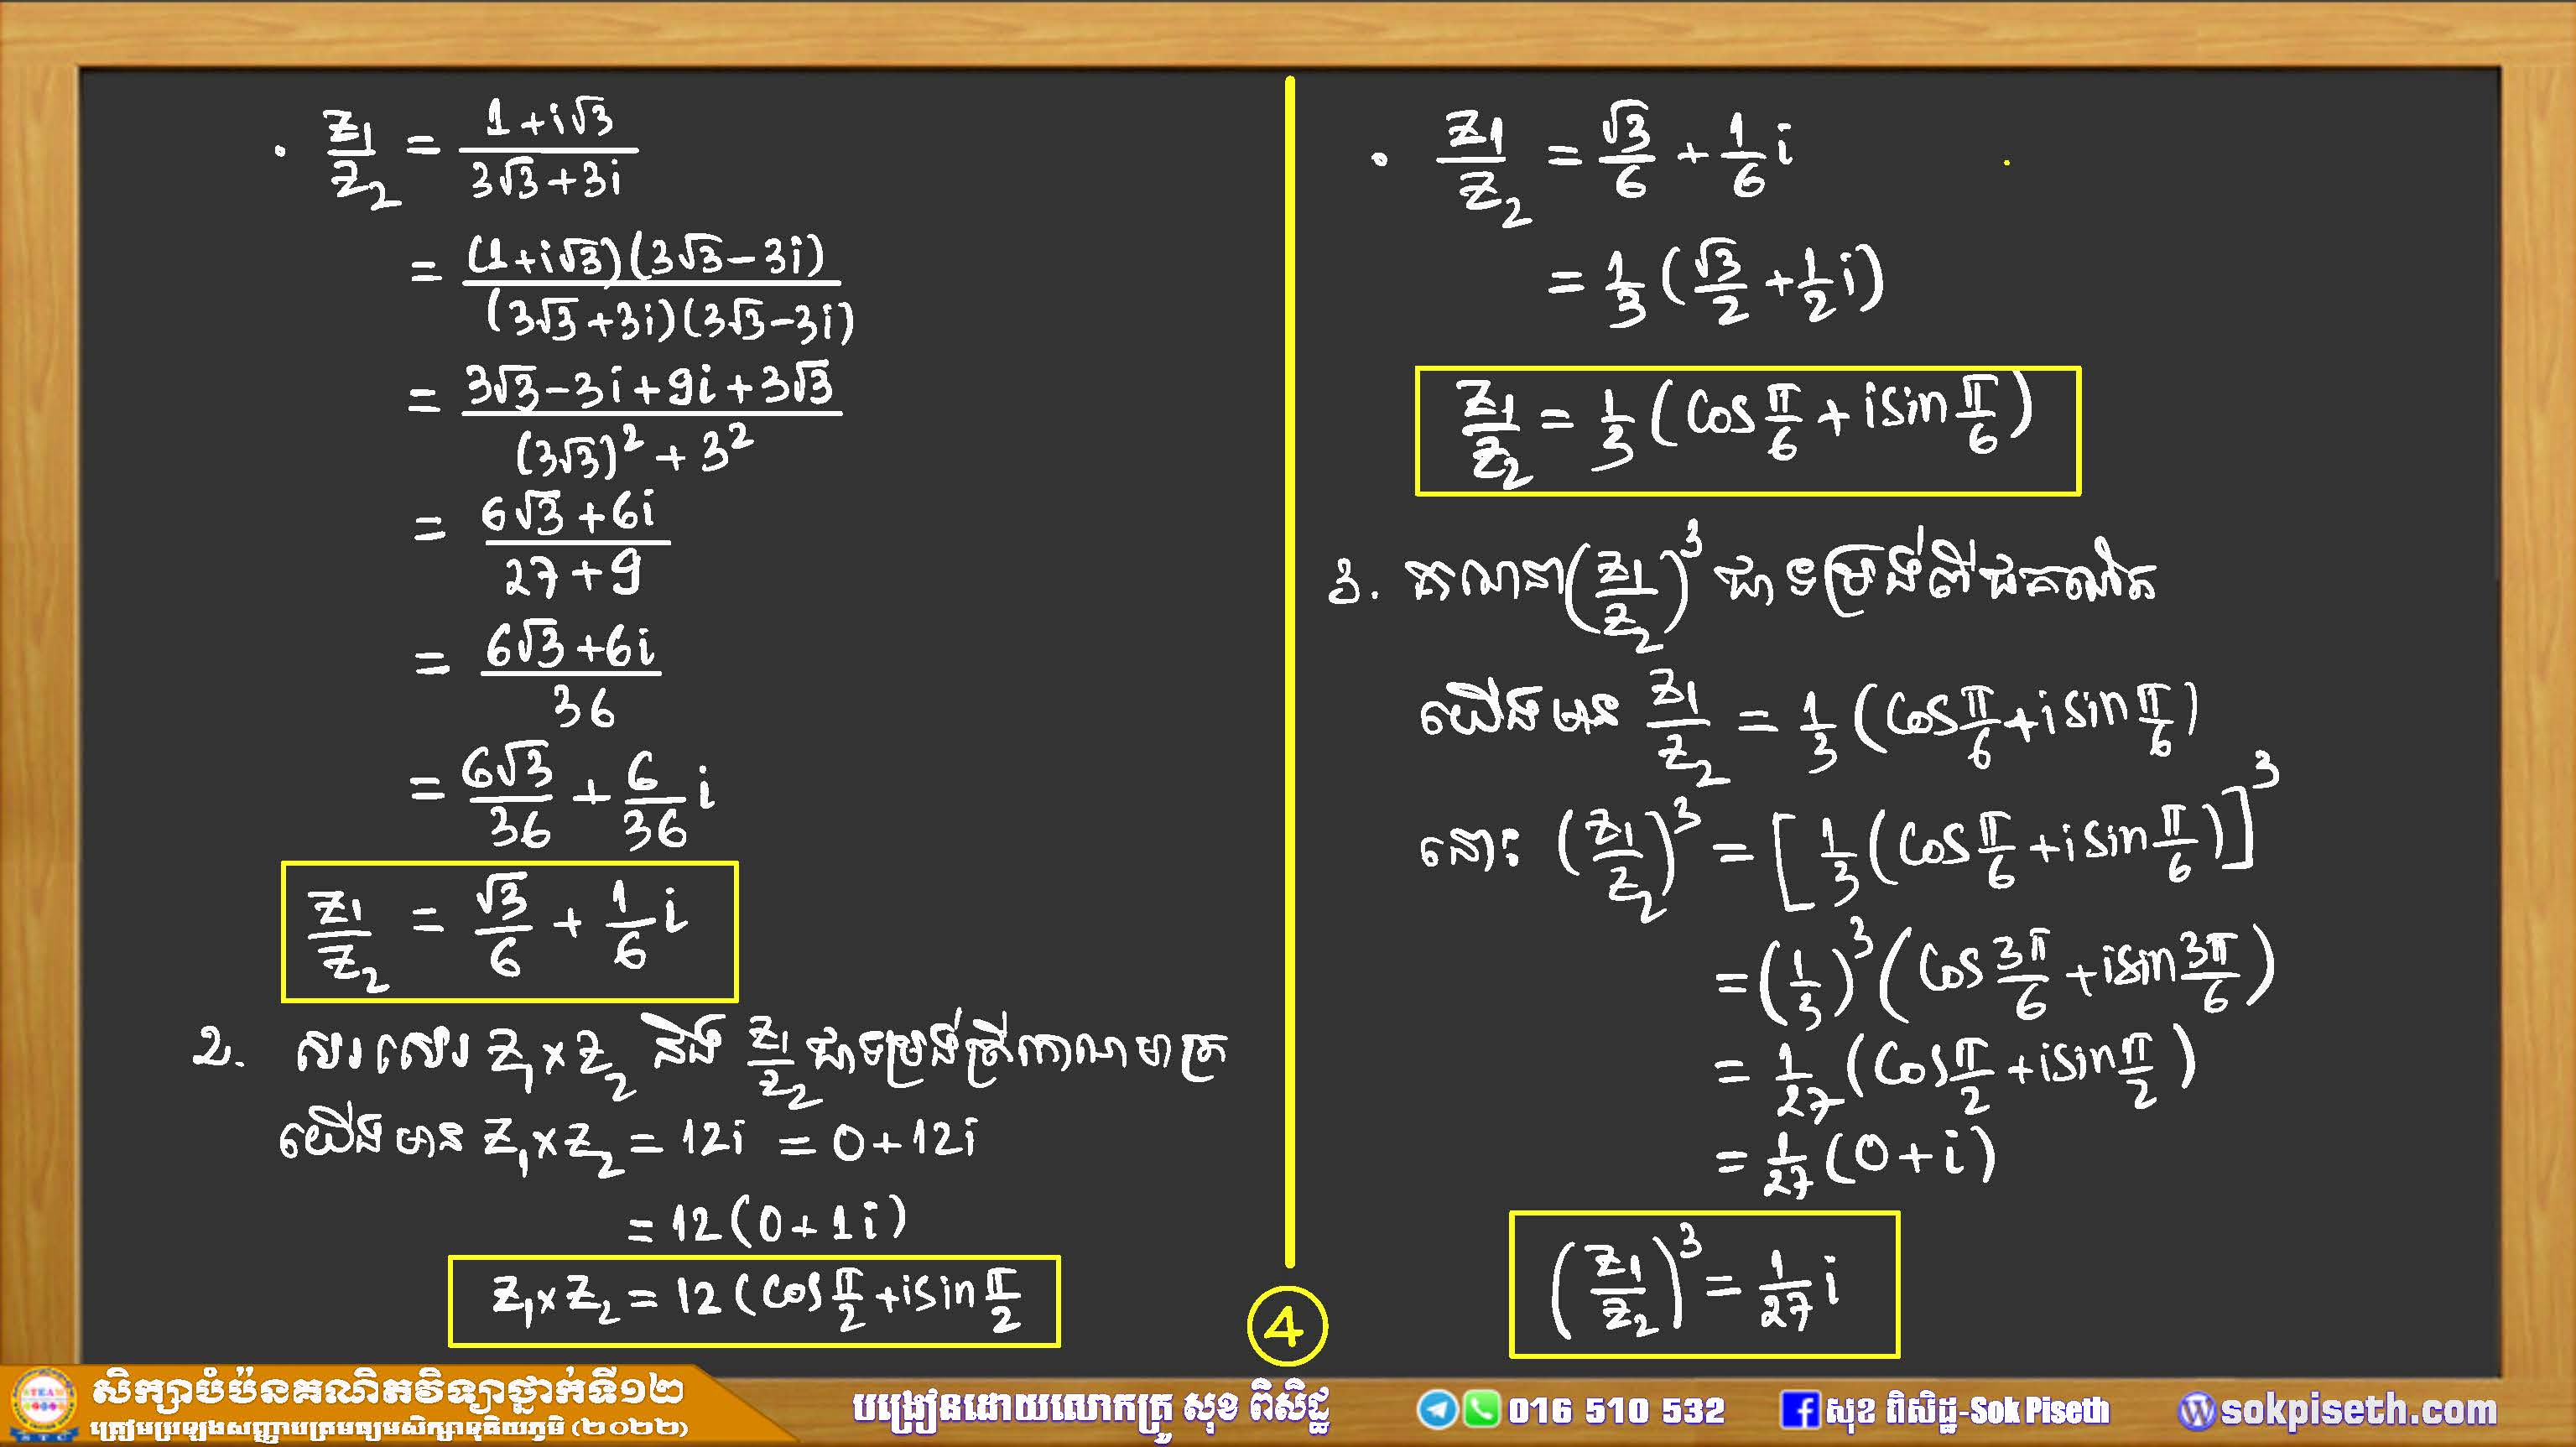 • z₁/z₂ = (1+i√3)/(3√3+3i)
= (1+i√3)(3√3-3i)/(3√3+3i)(3√3-3i)
= (3√3-3i+9i+3√3)/((3√3)²+3²)
= (6√3+6i)/(27+9)
= (6√3+6i)/36
= 6√3/36 + 6/36 i
z₁/z₂ = √3/6 + 1/6 i
2. សរសេរ z₁×z₂ និង z₁/z₂ ជាទម្រង់ត្រីកោណមាត្រ
យើងមាន z₁×z₂ = 12i = 0+12i
= 12(0+1i)
z₁×z₂ = 12(Cos π/2 + isin π/2
• z₁/z₂ = √3/6 + 1/6 i
= 1/3 (√3/2 + 1/2 i)
z₁/z₂ = 1/3 (Cos π/6 + isin π/6)
3. គណនា (z₁/z₂)³ ជាទម្រង់ពីជគណិត
យើងមាន z₁/z₂ = 1/3 (Cos π/6 + isin π/6)
នោះ (z₁/z₂)³ = [1/3 (Cos π/6 + isin π/6)]³
= (1/3)³ (Cos 3π/6 + isin 3π/6)
= 1/27 (Cos π/2 + isin π/2)
= 1/27 (0+i)
(z₁/z₂)³ = 1/27 i
4
សិក្សាបំប៉នគណិតវិទ្យាថ្នាក់ទី១២
ត្រៀមប្រឡងសញ្ញាបត្រមធ្យមសិក្សាទុតិយភូមិ (២០២២)
បង្រៀនដោយលោកគ្រូ សុខ ពិសិដ្ឋ
016 510 532
សុខ ពិសិដ្ឋ-Sok Piseth
sokpiseth.com